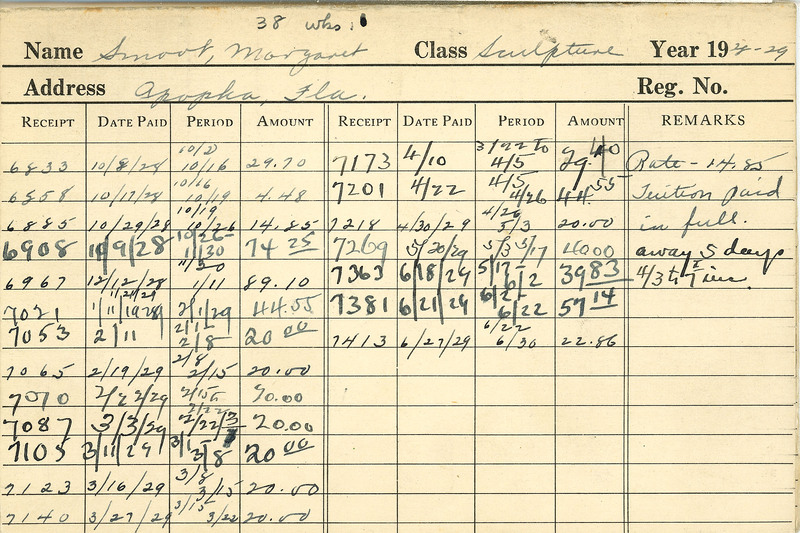 38 wks.
Name Smoot, Margaret Class Sculpture Year 19 28-29
Address Apopka, Fla. Reg. No.
RECEIPT DATE PAID PERIOD AMOUNT RECEIPT DATE PAID PERIOD AMOUNT REMARKS
6833 10/8/28 10/2 10/16 29.70 7173 4/10 3/22 to 4/5 29.40 Rate - 14.85
6858 10/17/28 10/16 10/19 4.48 7201 4/22 4/5 4/26 44.55 Tuition paid
6885 10/29/28 10/19 10/26 14.85 7218 4/30/29 4/26 5/3 20.00 in full.
6908 11/9/28 10/26- 11/30 74 25 7269 5/20/29 5/3 5/17 40.00 away 5 days
6967 12/12/28 11/30 1/11 89.10 7363 6/18/29 5/17- 6/2 39 83 4/3 to inc.
7021 2/1/29 44.55 7381 6/21/29 6/22 57 14
7053 2/11 2/1 2/8 20 00 7413 6/27/29 6/22 6/30 22.86
7065 2/19/29 2/8 2/15 20.00
7070 2/22/29 2/15 2/22 20.00
7087 3/3/29 2/22 20.00
7105 3/11/29 3/1 3/8 20 00
7123 3/16/29 3/8 3/15 20.00
7140 3/27/29 3/15 3/22 20.00